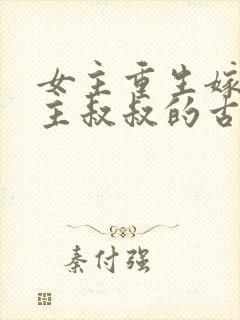 女主重生嫁
主叔叔的古
秦付强